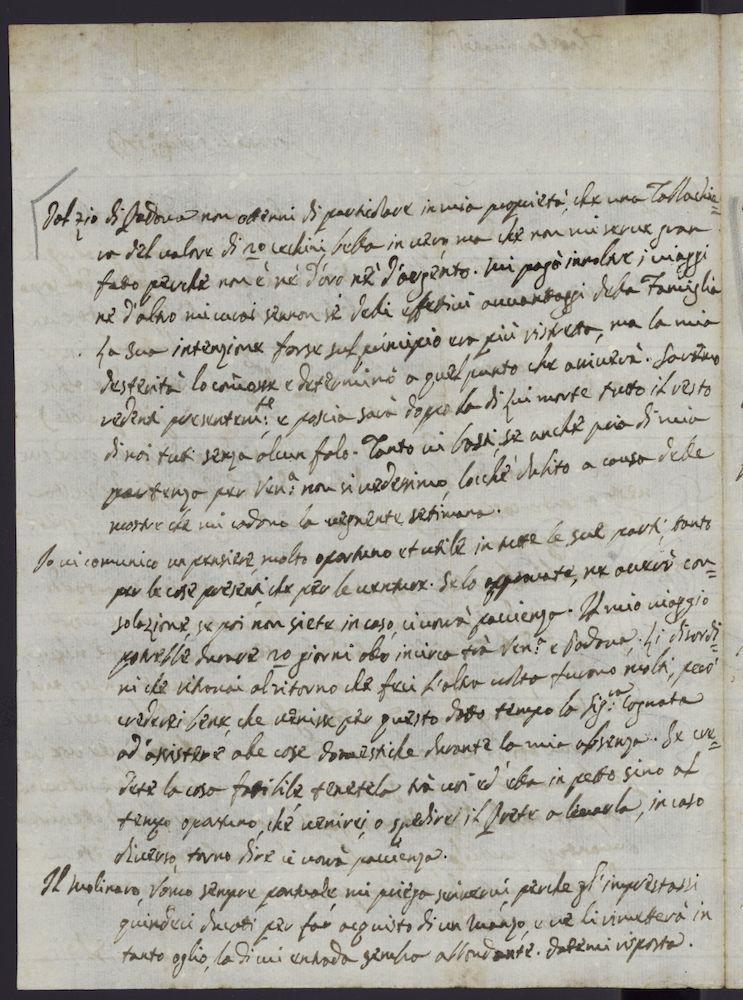 Dal zio di Padova non ottenni di particolare in mia proprietà, che una Tabbachie=
ra del valore di 20 cechini, bella in vero, ma che non mi serve gran
fatto perchè non è nè d'oro nè d'argento. Mi pagò inoltre i viaggi
nè d'altro mi curai sennon sè delli effettivi avvantaggi della Famiglia
La sua intenzione forse sul principio era più ristretta, ma la mia
desterità lo comosse e determinò a quel punto che arriverà. Saremo
redenti presentem:te e poscia sarà doppo la di lui morte tutto il resto
di noi tuti senza alcun falo. Tanto vi basti, se anche pria di mia
partenza per Ven:a non si vedessimo, locchè dubito a causa delle
mostre che mi cadono la vegnente setimana.
Io vi comunico un pensiere molto oportuno et utile in tutte le sue parti, tanto
per le cose presenti, che per le venture. Se lo approvate, ne averò con=
solazione, se poi non siete in caso, ci vorrà pacienza. Il mio viaggio
potrebbe durare 20 giorni allo incirca trà Ven:a e Padova. Li disordi=
ni che ritrovai al ritorno che feci l'altra volta furono molti, però
crederei bene, che venisse per questo dato tempo la Sig:ra Cognata
ad assistere alle cose domestiche durante la mia absenza. Se cre=
dete la cosa fatibile tenetela trà voi ed ella in petto sino al
tempo oportuno, chè venirei, o spedirei il Prete a levarla, in caso
diverso, torno dire ci vorrà pacienza.
Il Molinaro, Uomo sempre pontuale mi priega scrivervi, perche gl'imprestassi
quindeci ducati per far acquisto di un Manzo, e ve li rimetterà in
tanto oglio, la di cui entrada sembra abbondante. Datemi risposta.